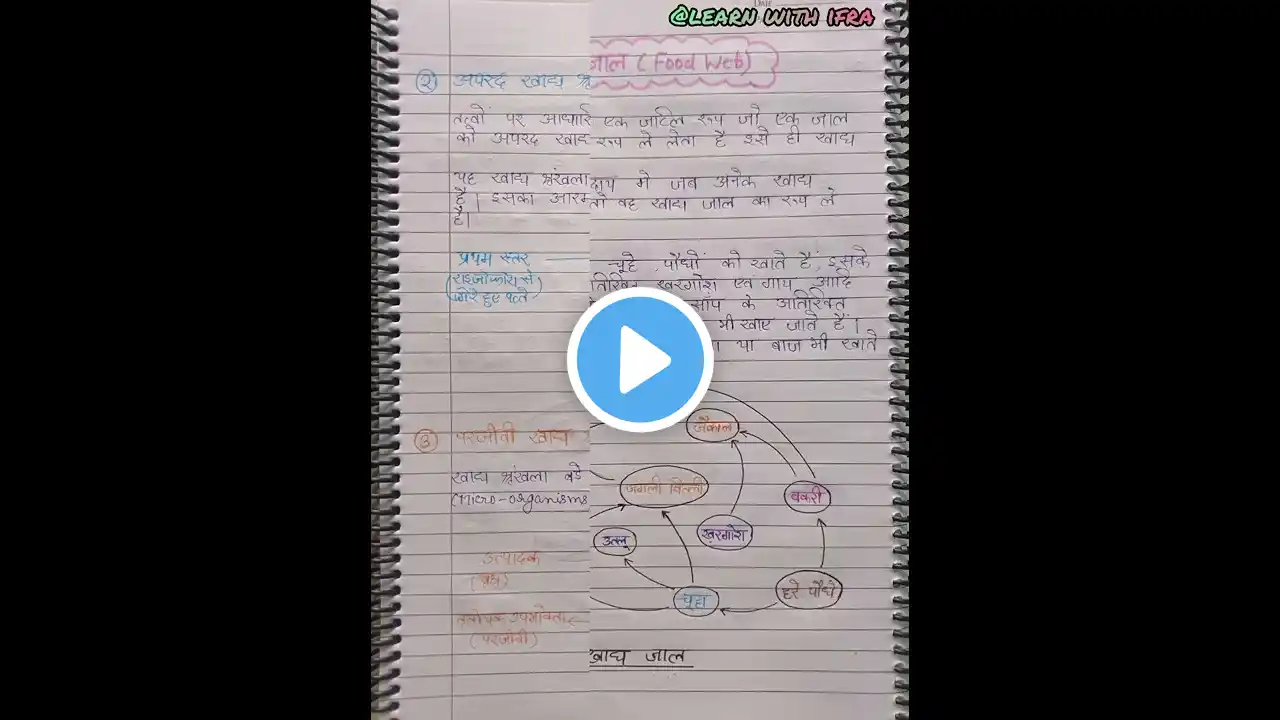 DATE
@LEARN WITH IFRA
जाल (Food Web)
② अपरद खाद्य श्रृ
तत्वों पर आधारि
को अपरद खाद्य
एक जटिल रूप जो एक जाल
रूप ले लेता है इसे ही खाद्य
यह खाद्य श्रृंखला
है। इसका आरम्
है।
दाय में जब अनेक खाद्य
तो वह खाद्य जाल का रूप ले
प्रथम स्तर
(राइजोफोरा से
गिरे हुए पत्ते
चूहे पौधों को खाते हैं, इसके
तिरिक्त खरगोश एवं गाय आदि
साँप के अतिरिक्त
भी खाए जाते हैं।
या बाज भी खाते
③ परजीवी खाद्य
खाद्य श्रृंखला बड़े
(micro-organisms
उत्पादक
(वृक्ष)
उपभोक्ता
(परजीवी)
जैकाल
जंगली बिल्ली
बकरी
उल्लू
खरगोश
चूहा
हरे पौधे
खाद्य जाल